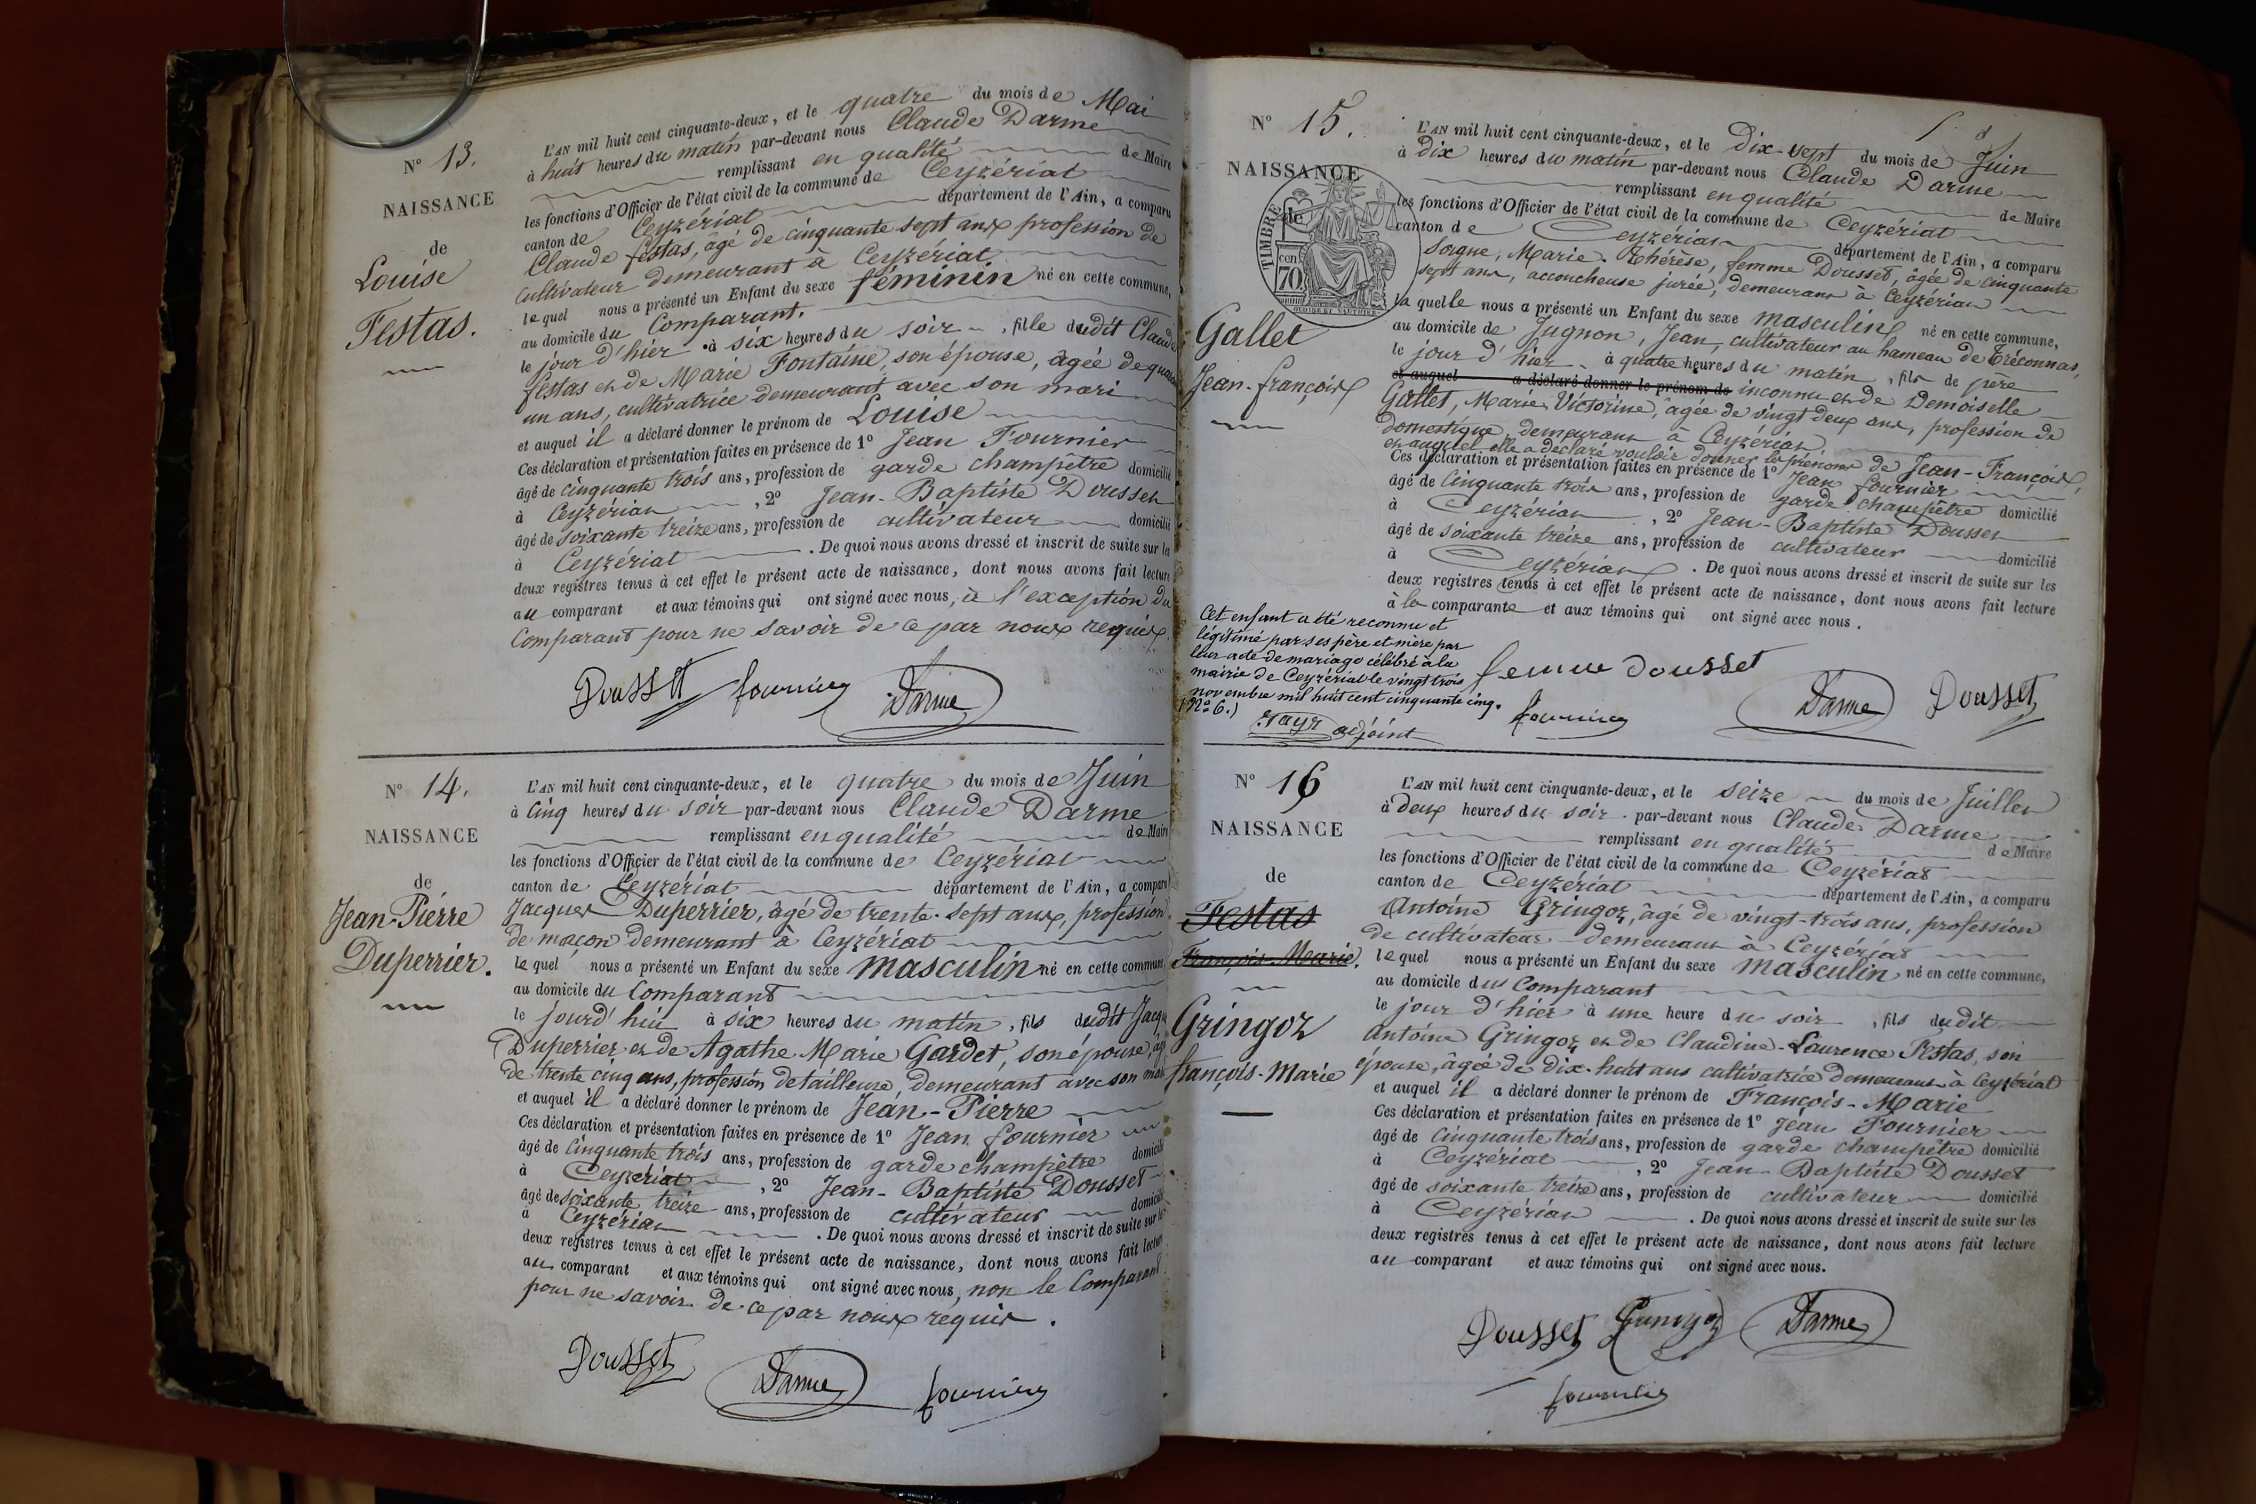 N° 13.
NAISSANCE
de
Louise
Festas.
L'AN mil huit cent cinquante-deux, et le quatre du mois de Mai
à huit heures du matin par-devant nous Claude Darme
remplissant en qualité de Maire
les fonctions d'Officier de l'état civil de la commune de Ceyzériat
canton de Ceyzériat département de l'Ain, a comparu
Claude Festas, âgé de cinquante sept ans profession de
cultivateur demeurant à Ceyzériat
lequel nous a présenté un Enfant du sexe féminin né en cette commune,
au domicile du Comparant.
le jour d'hier à six heures du soir, fille dudit Claude
Festas et de Marie Fontaine, son épouse, âgée de quara
un ans, cultivatrice demeurant avec son mari
et auquel il a déclaré donner le prénom de Louise
Ces déclaration et présentation faites en présence de 1° Jean Fournier
âgé de cinquante trois ans, profession de garde champêtre domicilié
à Ceyzériat, 2° Jean-Baptiste Dousset
âgé de soixante treize ans, profession de cultivateur domicilié
à Ceyzériat. De quoi nous avons dressé et inscrit de suite sur la
deux registres tenus à cet effet le présent acte de naissance, dont nous avons fait lecture
au comparant et aux témoins qui ont signé avec nous, à l'exception du
Comparant pour ne savoir de ce par nous requis.
Dousset fournier Darme
N° 14.
NAISSANCE
de
Jean-Pierre
Duperrier.
L'AN mil huit cent cinquante-deux, et le quatre du mois de Juin
à Cinq heures du soir par-devant nous Claude Darme
remplissant en qualité de Maire
les fonctions d'Officier de l'état civil de la commune de Ceyzériat
canton de Ceyzériat département de l'Ain, a comparu
Jacques Duperrier, âgé de trente-sept ans, profession
de maçon demeurant à Ceyzériat
lequel nous a présenté un Enfant du sexe masculin né en cette commune
au domicile du Comparant
le jourd'hui à six heures du matin, fils dudit Jacqu
Duperrier et de Agathe Marie Gardet, son épouse, âg
de trente cinq ans, profession de tailleuse demeurant avec son mari
et auquel il a déclaré donner le prénom de Jean-Pierre
Ces déclaration et présentation faites en présence de 1° Jean fournier
âgé de Cinquante trois ans, profession de garde champêtre domicilié
à Ceyzériat, 2° Jean-Baptiste Dousset
âgé de soixante treize ans, profession de cultivateur domicilié
à Ceyzériat. De quoi nous avons dressé et inscrit de suite sur les
deux registres tenus à cet effet le présent acte de naissance, dont nous avons fait lecture
au comparant et aux témoins qui ont signé avec nous, non le Comparant
pour ne savoir de ce par nous requis.
Dousset Darme fournier
N° 15.
NAISSANCE
de
TIMBRE
cen
70
Gallet
Jean-françois
L'AN mil huit cent cinquante-deux, et le Dix-sept du mois de Juin
à dix heures du matin par-devant nous Claude Darme
remplissant en qualité de Maire
les fonctions d'Officier de l'état civil de la commune de Ceyzériat
canton de Ceyzériat département de l'Ain, a comparu
Sorgue, Marie-Thérèse, femme Dousset, âgée de cinquante
sept ans, accoucheuse jurée, demeurant à Ceyzériat
la quelle nous a présenté un Enfant du sexe masculin né en cette commune,
au domicile de Jugnon, Jean, cultivateur au hameau de Tréconnas,
le jour d'hier à quatre heures du matin, fils de père
et auquel a déclaré donner le prénom de inconnu et de Demoiselle
Gallet, Marie Victorine, âgée de vingt deux ans, profession de
domestique demeurant à Ceyzériat
et auquel elle a déclaré vouloir donner les prénoms de Jean-François,
Ces déclaration et présentation faites en présence de 1° Jean fournier
âgé de Cinquante trois ans, profession de garde champêtre domicilié
à Ceyzériat, 2° Jean-Baptiste Dousset
âgé de soixante treize ans, profession de cultivateur domicilié
à Ceyzériat. De quoi nous avons dressé et inscrit de suite sur les
deux registres tenus à cet effet le présent acte de naissance, dont nous avons fait lecture
à la comparante et aux témoins qui ont signé avec nous.
Cet enfant a été reconnu et
légitimé par ses père et mère par
leur acte de mariage célébré à la
mairie de Ceyzériat le vingt trois
novembre mil huit cent cinquante cinq.
(N° 6.)
adjoint
femme Dousset
fournier Darme Dousset
N° 16
NAISSANCE
de
Festas
François-Marie.
Gringoz
françois-Marie
L'AN mil huit cent cinquante-deux, et le seize du mois de Juillet
à deux heures du soir par-devant nous Claude Darme
remplissant en qualité de Maire
les fonctions d'Officier de l'état civil de la commune de Ceyzériat
canton de Ceyzériat département de l'Ain, a comparu
Antoine Gringoz, âgé de vingt-trois ans, profession
de cultivateur demeurant à Ceyzériat
lequel nous a présenté un Enfant du sexe masculin né en cette commune,
au domicile du Comparant
le jour d'hier à une heure du soir, fils dudit
Antoine Gringoz et de Claudine-Laurence Festas, son
épouse, âgée de dix-huit ans cultivatrice demeurant à Ceyzériat
et auquel il a déclaré donner le prénom de François-Marie
Ces déclaration et présentation faites en présence de 1° Jean Fournier
âgé de cinquante trois ans, profession de garde champêtre domicilié
à Ceyzériat, 2° Jean-Baptiste Dousset
âgé de soixante treize ans, profession de cultivateur domicilié
à Ceyzériat. De quoi nous avons dressé et inscrit de suite sur les
deux registres tenus à cet effet le présent acte de naissance, dont nous avons fait lecture
au comparant et aux témoins qui ont signé avec nous.
Dousset Gringoz Darme
fournier